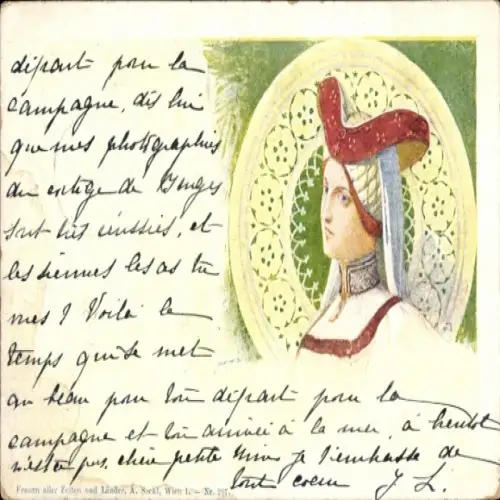 départ pour la
campagne, dis lui
que mes photographies
du cortège de Bruges
sont très réussies, et
les siennes les as tu
vues ? Voilà le
temps qui se met
au beau pour ton départ pour la
campagne et ton arrivée à la mer, à bientôt
n'est ce pas, chère petite Mimi je t'embrasse de
tout coeur J. L.
Frauen aller Zeiten und Länder, A. Sockl, Wien I. – Nr.